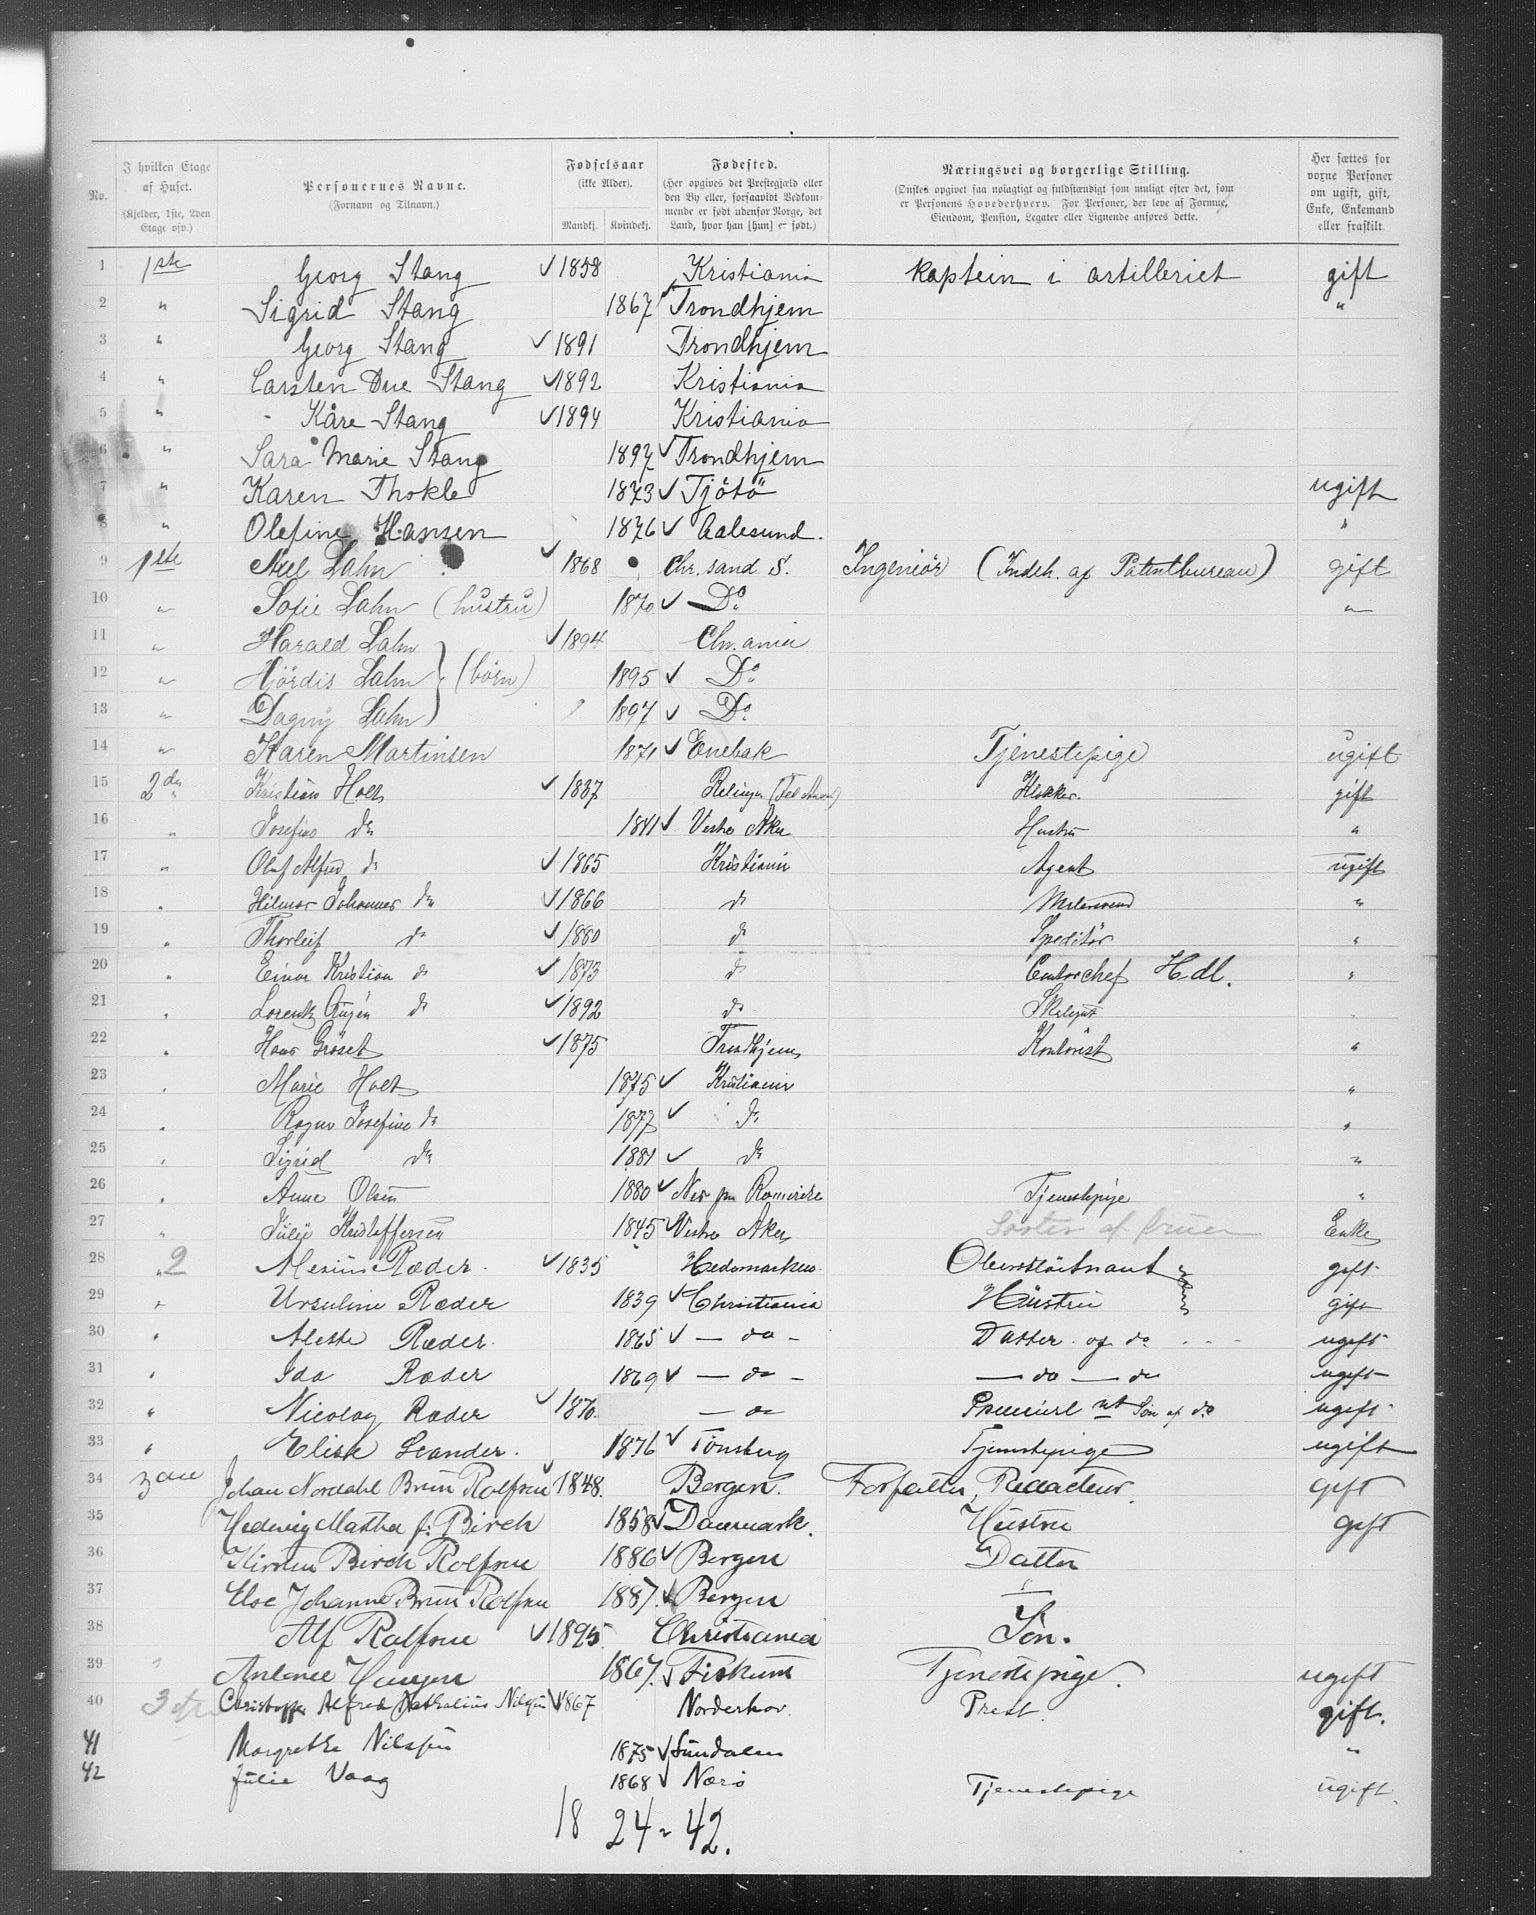 No.
I hvilken Etage af Huset.
(Kjelder, 1ste, 2den Etage osv.)
Personernes Navne.
(Fornavn og Tilnavn.)
Fødselsaar
(ikke Alder).
Mandkj. Kvindekj.
Fødested.
(Her opgives det Prestegjæld eller den By eller, forsaavidt Bedkommende er født udenfor Norge, det Land, hvor han [hun] er født.)
Næringsvei og borgerlige Stilling.
(Ønskes opgivet saa nøiagtigt og fuldstændigt som muligt efter det, som er Personens Hovederhverv. For Personer, der leve af Formue, Eiendom, Pension, Legater eller Lignende anføres dette.
Her sættes for voxne Personer om ugift, gift, Enke, Enkemand eller fraskilt.
1 1ste Georg Stang ✓ 1858 Kristiania kaptein i artilleriet gift
2 " Sigrid Stang 1867 ✓ Trondhjem "
3 " Georg Stang ✓ 1891 Trondhjem
4 " Carsten Due Stang ✓ 1892 Kristiania
5 " Kåre Stang ✓ 1894 Kristiania
6 " Sara Marie Stang 1897 ✓ Trondhjem
7 " Karen Thokle 1873 ✓ Tjötö ugift
8 " Olefine Hansen 1876 ✓ Aalesund. "
9 1ste Axel Lahn ✓ 1868 Chr.sand. S. Ingeniör (Indeh. af Patentbureau) gift
10 " Sofie Lahn (hustru) 1870 ✓ Do "
11 " Harald Lahn ✓ 1894 Chr.ania
12 " Hjördis Lahn (börn) 1895 ✓ Do
13 " Dagny Lahn 1897 ✓ Do
14 " Karen Martinsen 1871 ✓ Enebak Tjenestepige ugift
15 2den Kristian Holt ✓ 1837 Klokker. gift
16 " Josefine do 1841 ✓ Vestre Aker Hustru "
17 " Olaf Alfred do ✓ 1865 Kristiania Agent ugift
18 " Hilmar Johannes do ✓ 1866 do "
19 " Thorleif do ✓ 1880 do Speditör "
20 " Einar Kristian do ✓ 1873 do Contorchef Hdl. "
21 " Lorentz do ✓ 1892 do Skolegut
22 " Hans Gröset ✓ 1875 Trondhjem Kontorist "
23 " Marie Holt 1875 ✓ Kristiania "
24 " Ragna Josefine do 1877 ✓ do "
25 " Sigrid do 1881 ✓ do "
26 " Anne Olsen 1880 ✓ Nes på Romerike Tjenestepige "
27 " Julie Kristoffersen 1845 ✓ Vestre Aker Søster af fruen Enke
28 " 2 Ræder ✓ 1835 Hedemarken Oberstlöitnant gift
29 " Ursuline Ræder 1839 ✓ Christiania Hustru gift
30 " Ræder. 1865 ✓ — do — Datter af do ugift
31 " Ida Ræder 1869 ✓ — do — — do — do ugift
32 " Nicolay Ræder ✓ 1870. — do Premierlöt Sön af do ugift
33 " Elise Leander. 1876 ✓ Tönsberg Tjenestepige ugift
34 3die Johan Nordahl Brun Rolfsen ✓ 1848. Bergen. Forfatter, Redacteur. gift
35 Hedevig Martha f: Birch 1858 ✓ Danmark. Hustru gift
36 Kirsten Birch Rolfsen 1886 ✓ Bergen Datter
37 Else Johanne Brun Rolfsen 1887. ✓ Bergen
38 Alf Rolfsen ✓ 1895 Christiania Sön.
39 Antonie Haugen 1867. ✓ Fiskum Tjenestepige. ugift
40 3 etg Christopher Alfred Nathalius Nilssen ✓ 1867 Norderhov. Prest gift.
41 Margrethe Nilssen 1875 ✓ Sundalen "
42 Julie Vaag 1868 ✓ Nærö Tjenestepige ugift.
18 24 = 42.